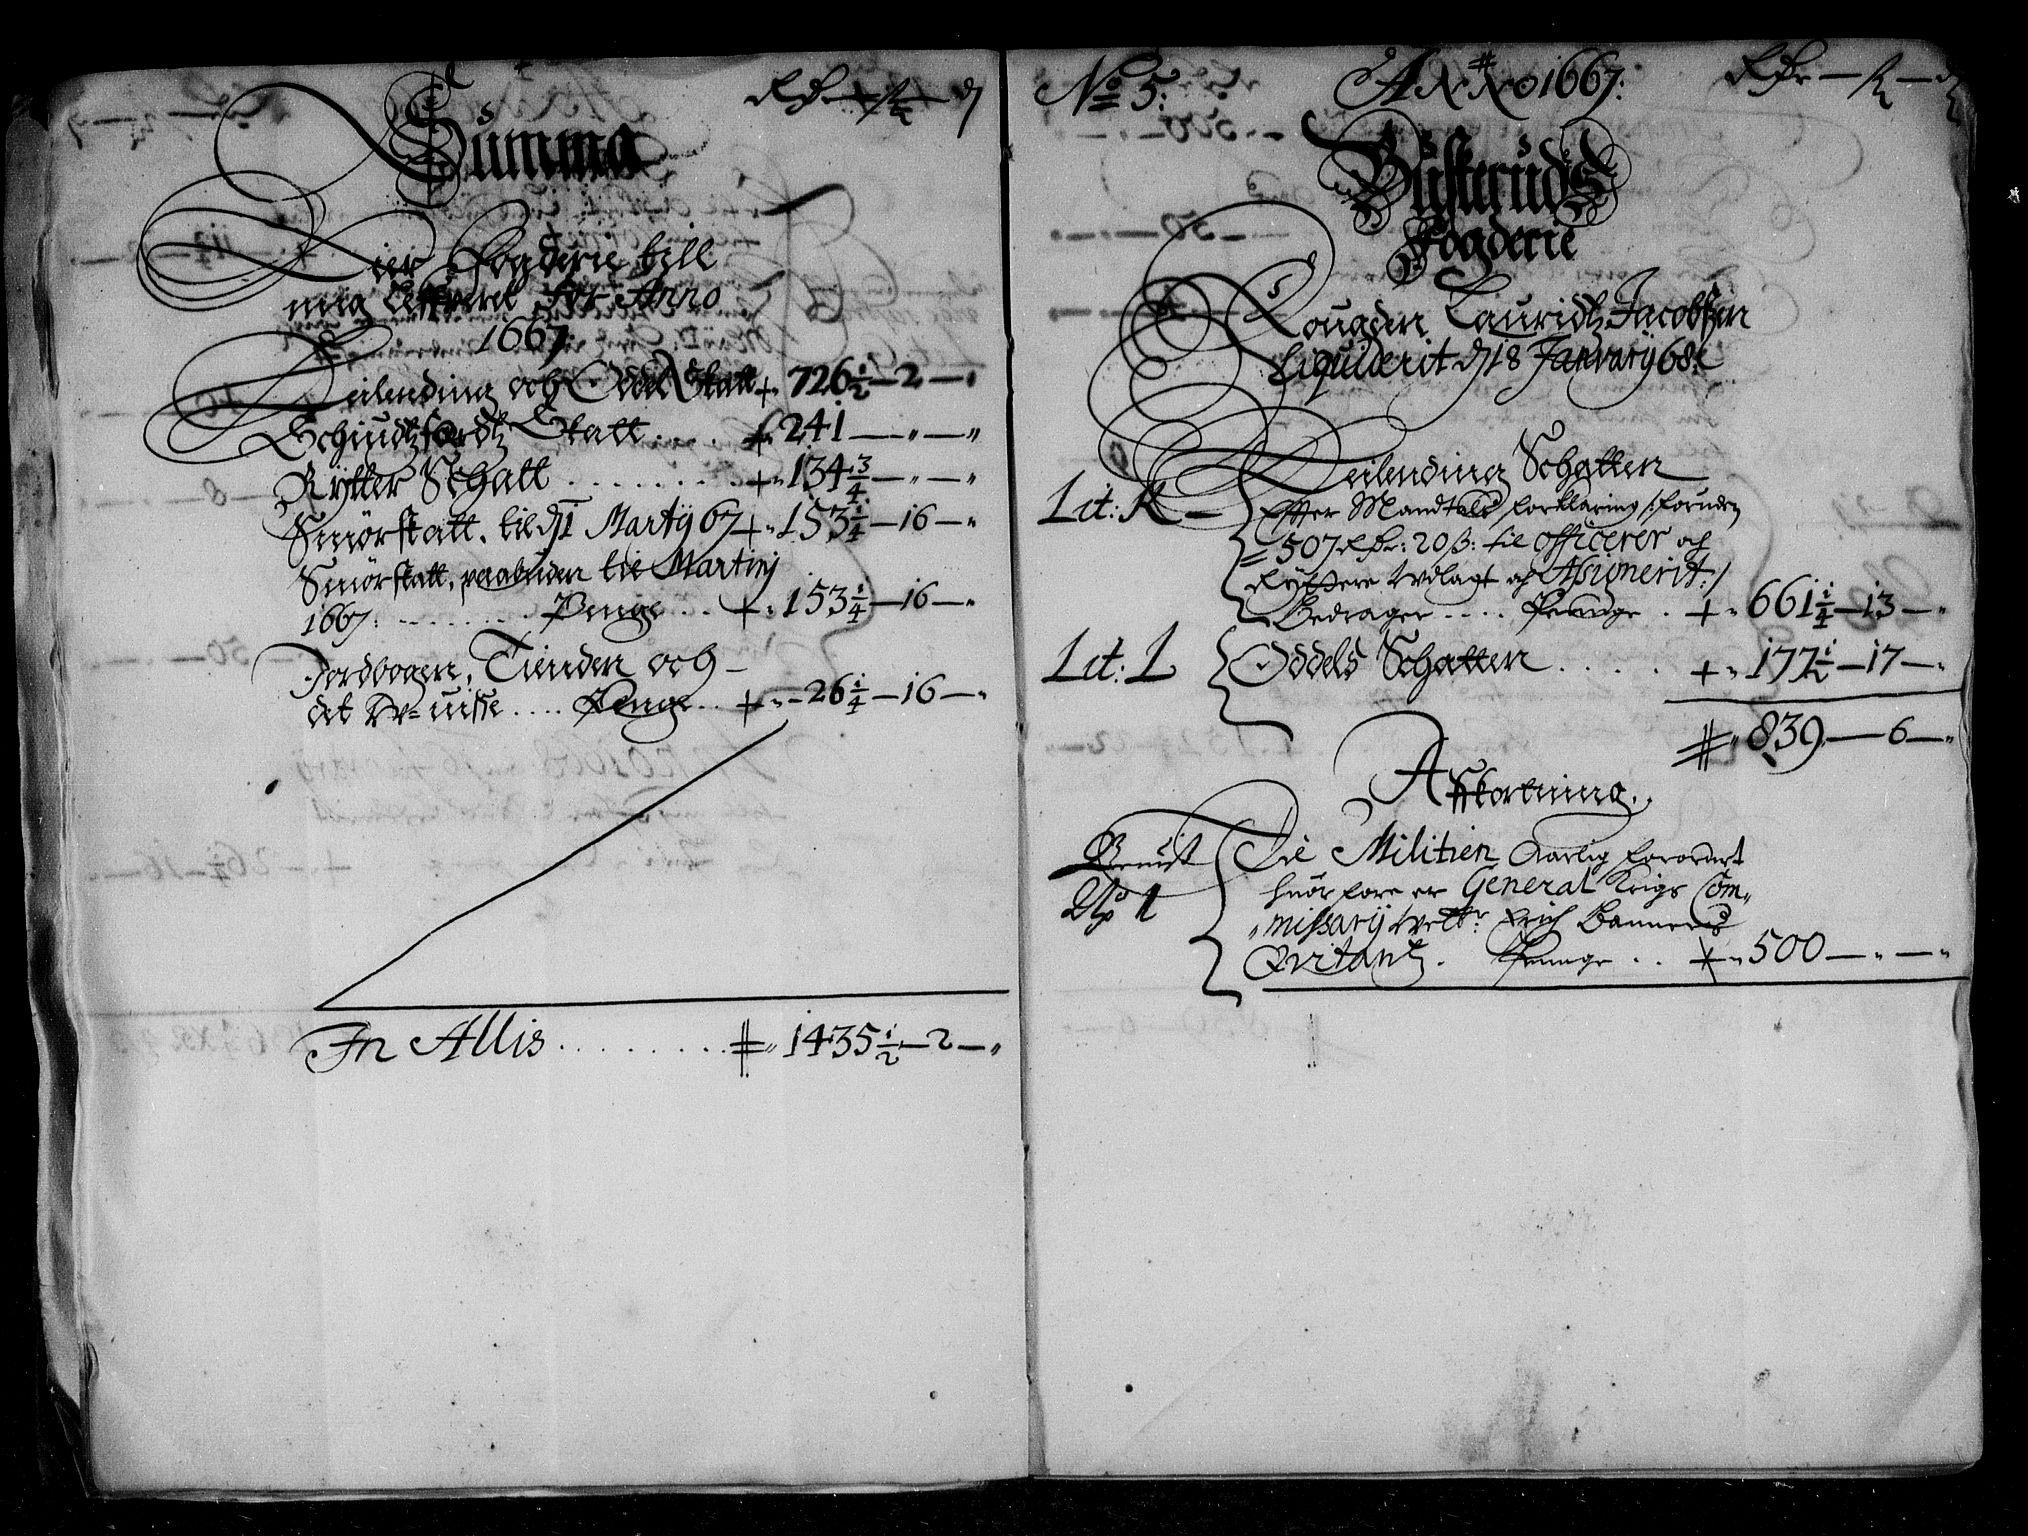 Rdr — ß — d
Summa
Lier Fogderie till
mig Leffveret for Anno
1667:
Leilending och Oddel Skatt + 726½ — 2 — "
Schiudtzferdtz Skatt .... + 241 — " — "
Rytter Schatt ........ + 134¾ — " — "
Smörskatt. til d 1 Martij 67 + 153¼ — 16 — "
Smörskatt, paabuden til Martinj
1667: ........ Penge .. + 153¼ — 16 — "
Jordbogen, Tienden och —
det Uuisse .... Penge .. + 26¼ — 16 — "
In Allis ........ 1435½ — 2 — "
No 5: ANNO 1667: Rdr — ß — d
Buskeruds
Fogderie
Fougden Lauridtz Jacobsen
Liquiderit d 18 January 68:
Leilending Schatten
Lit: K — Effter Mandtals forklaring /: foruden
507 Rdr: 20 ß: til officerer och
Ryttere Udlagt och Assignerit :/
Bedrager .... Penge . + 661¼ — 13 — "
Lit: L Oddels Schatten ..... + 177½ — 17 — "
839 — 6 — "
Affkortning.
Beuist Til Militien Aarlig forordnet
No 1 huor fore er General Krigs Com„
„missarij Welb: Erich Banners
Qvitantz. Penge .. + 500 — " — "